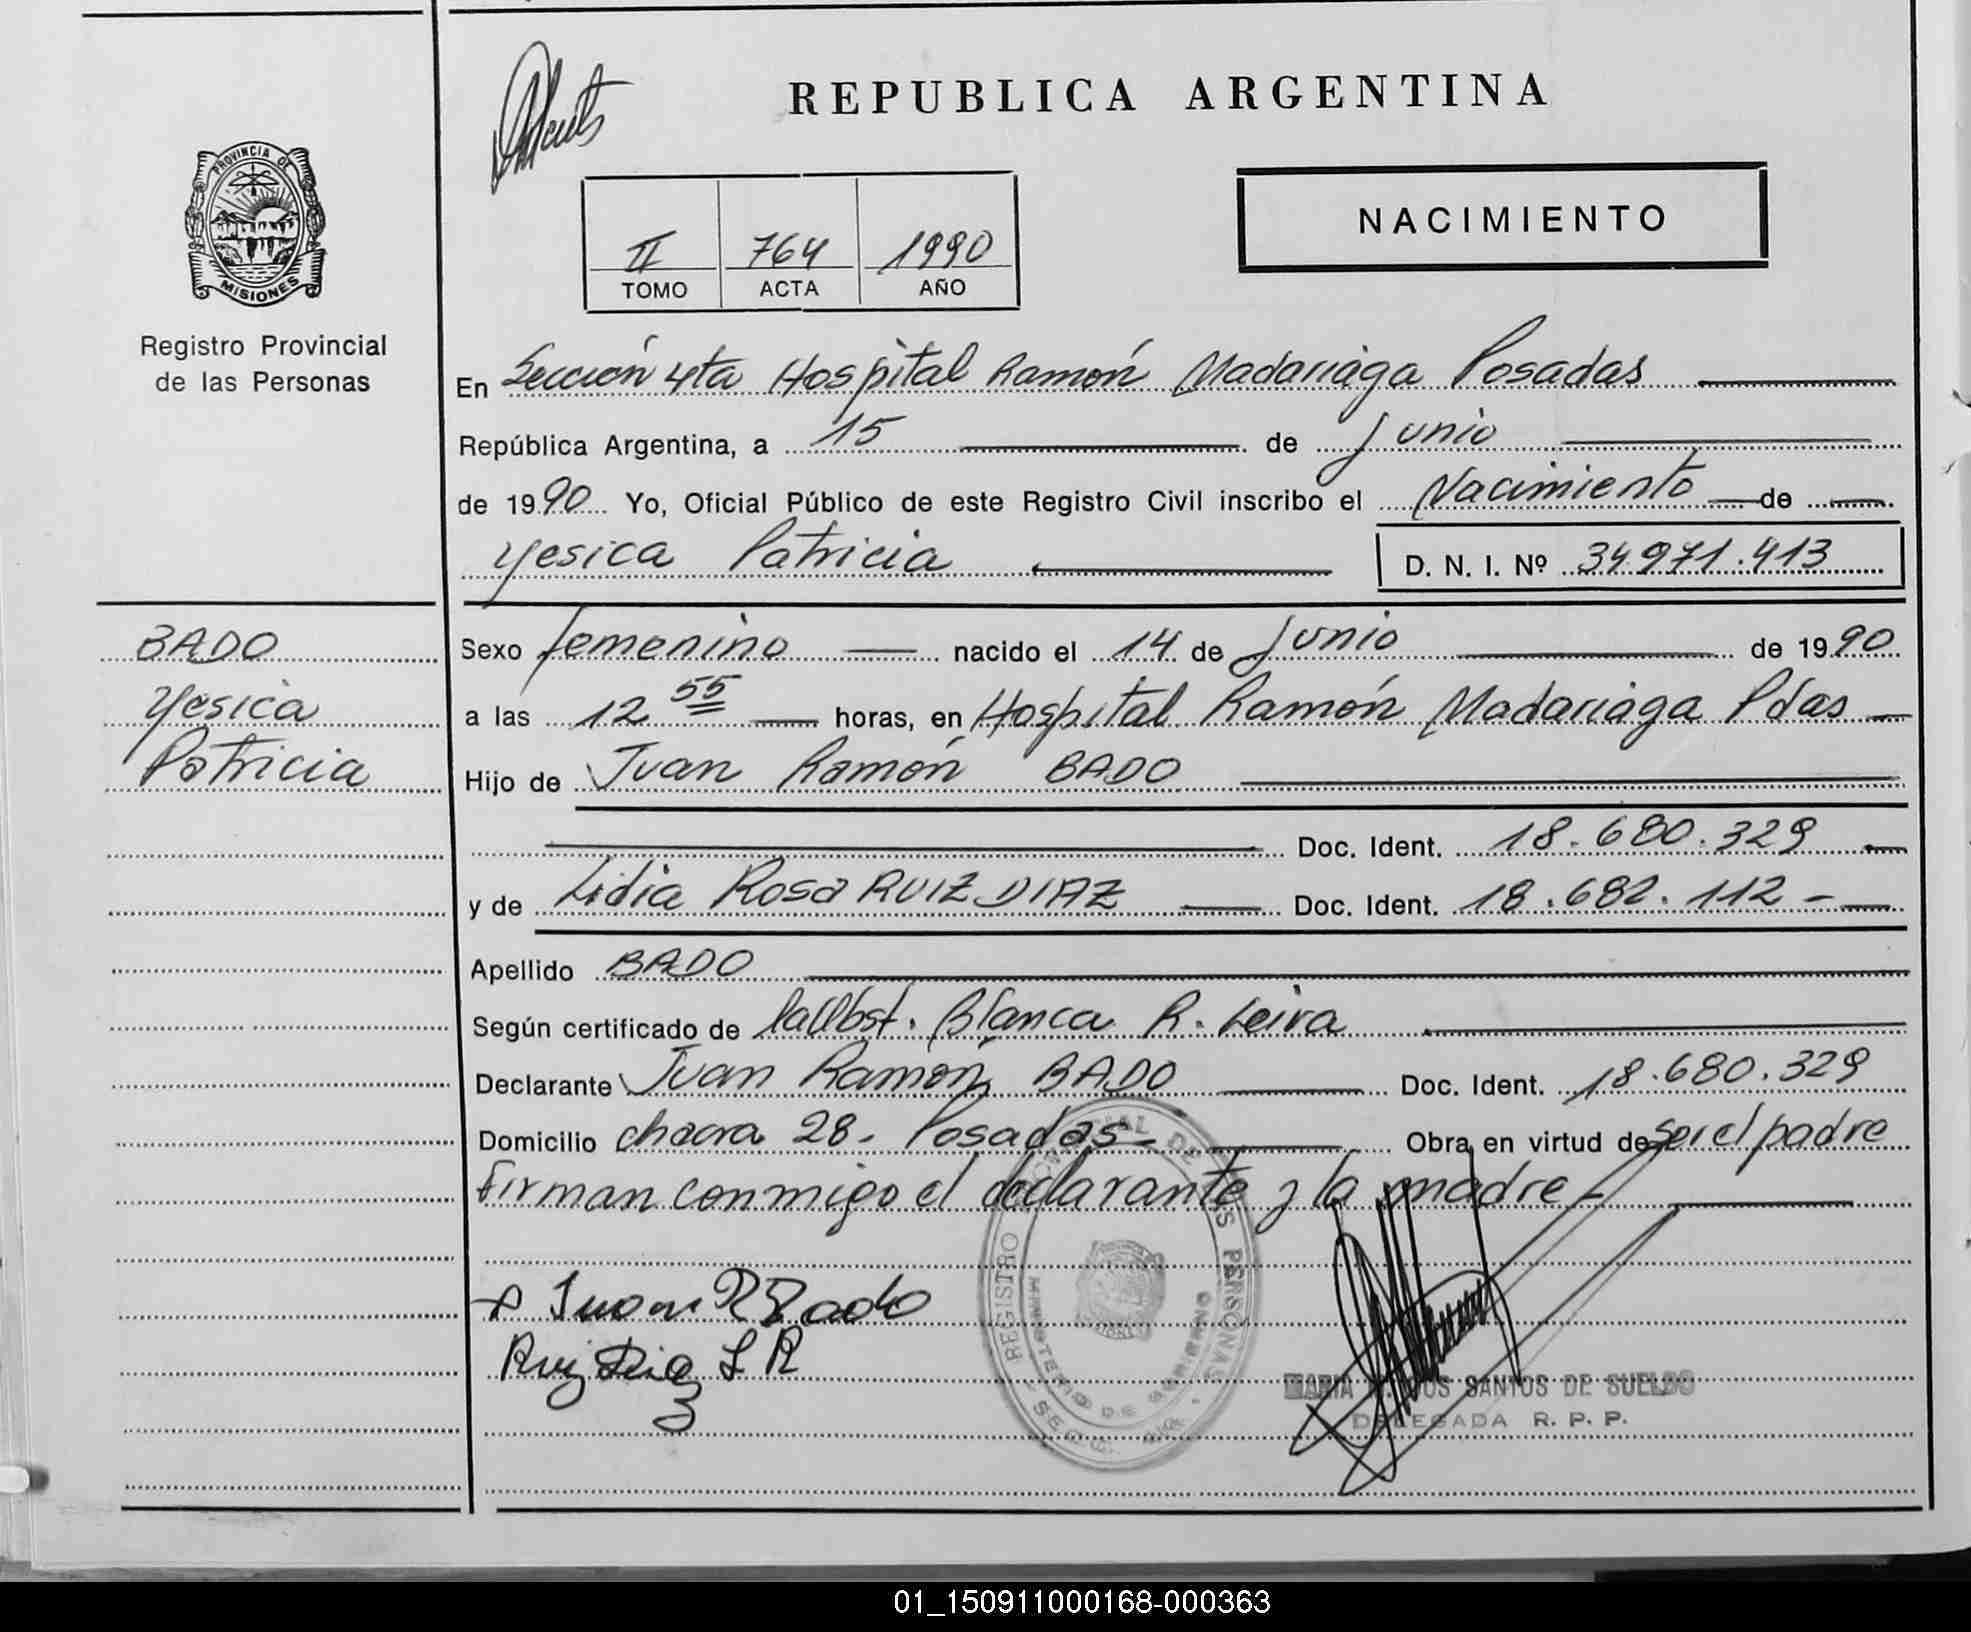 REPUBLICA ARGENTINA
PROVINCIA DE
MISIONES
Registro Provincial
de las Personas
II 764 1990
TOMO ACTA AÑO
NACIMIENTO
En Sección 4ta Hospital Ramón Madariaga Posadas
República Argentina, a 15 de Junio
de 1990 Yo, Oficial Público de este Registro Civil inscribo el Nacimiento de
Yesica Patricia D. N. I. Nº 34971.413
BADO
Yesica
Patricia
Sexo femenino nacido el 14 de Junio de 1990
a las 12 55 horas, en Hospital Ramón Madariaga Pdas
Hijo de Juan Ramón BADO
Doc. Ident. 18.680.329
y de Lidia Rosa RUIZ DIAZ Doc. Ident. 18.682.112-
Apellido BADO
Según certificado de Blanca R. Leiva
Declarante Juan Ramón BADO Doc. Ident. 18.680.329
Domicilio chacra 28- Posadas- Obra en virtud de ser el padre
Firman conmigo el declarante y la madre-
Juan R Bado
Ruiz Diaz L R
REGISTRO PROVINCIAL DE LAS PERSONAS
MINISTERIO DE GOBIERNO
SECC. 4ta
MARIA DOS SANTOS DE SUELDO
DELEGADA R. P. P.
01_150911000168-000363